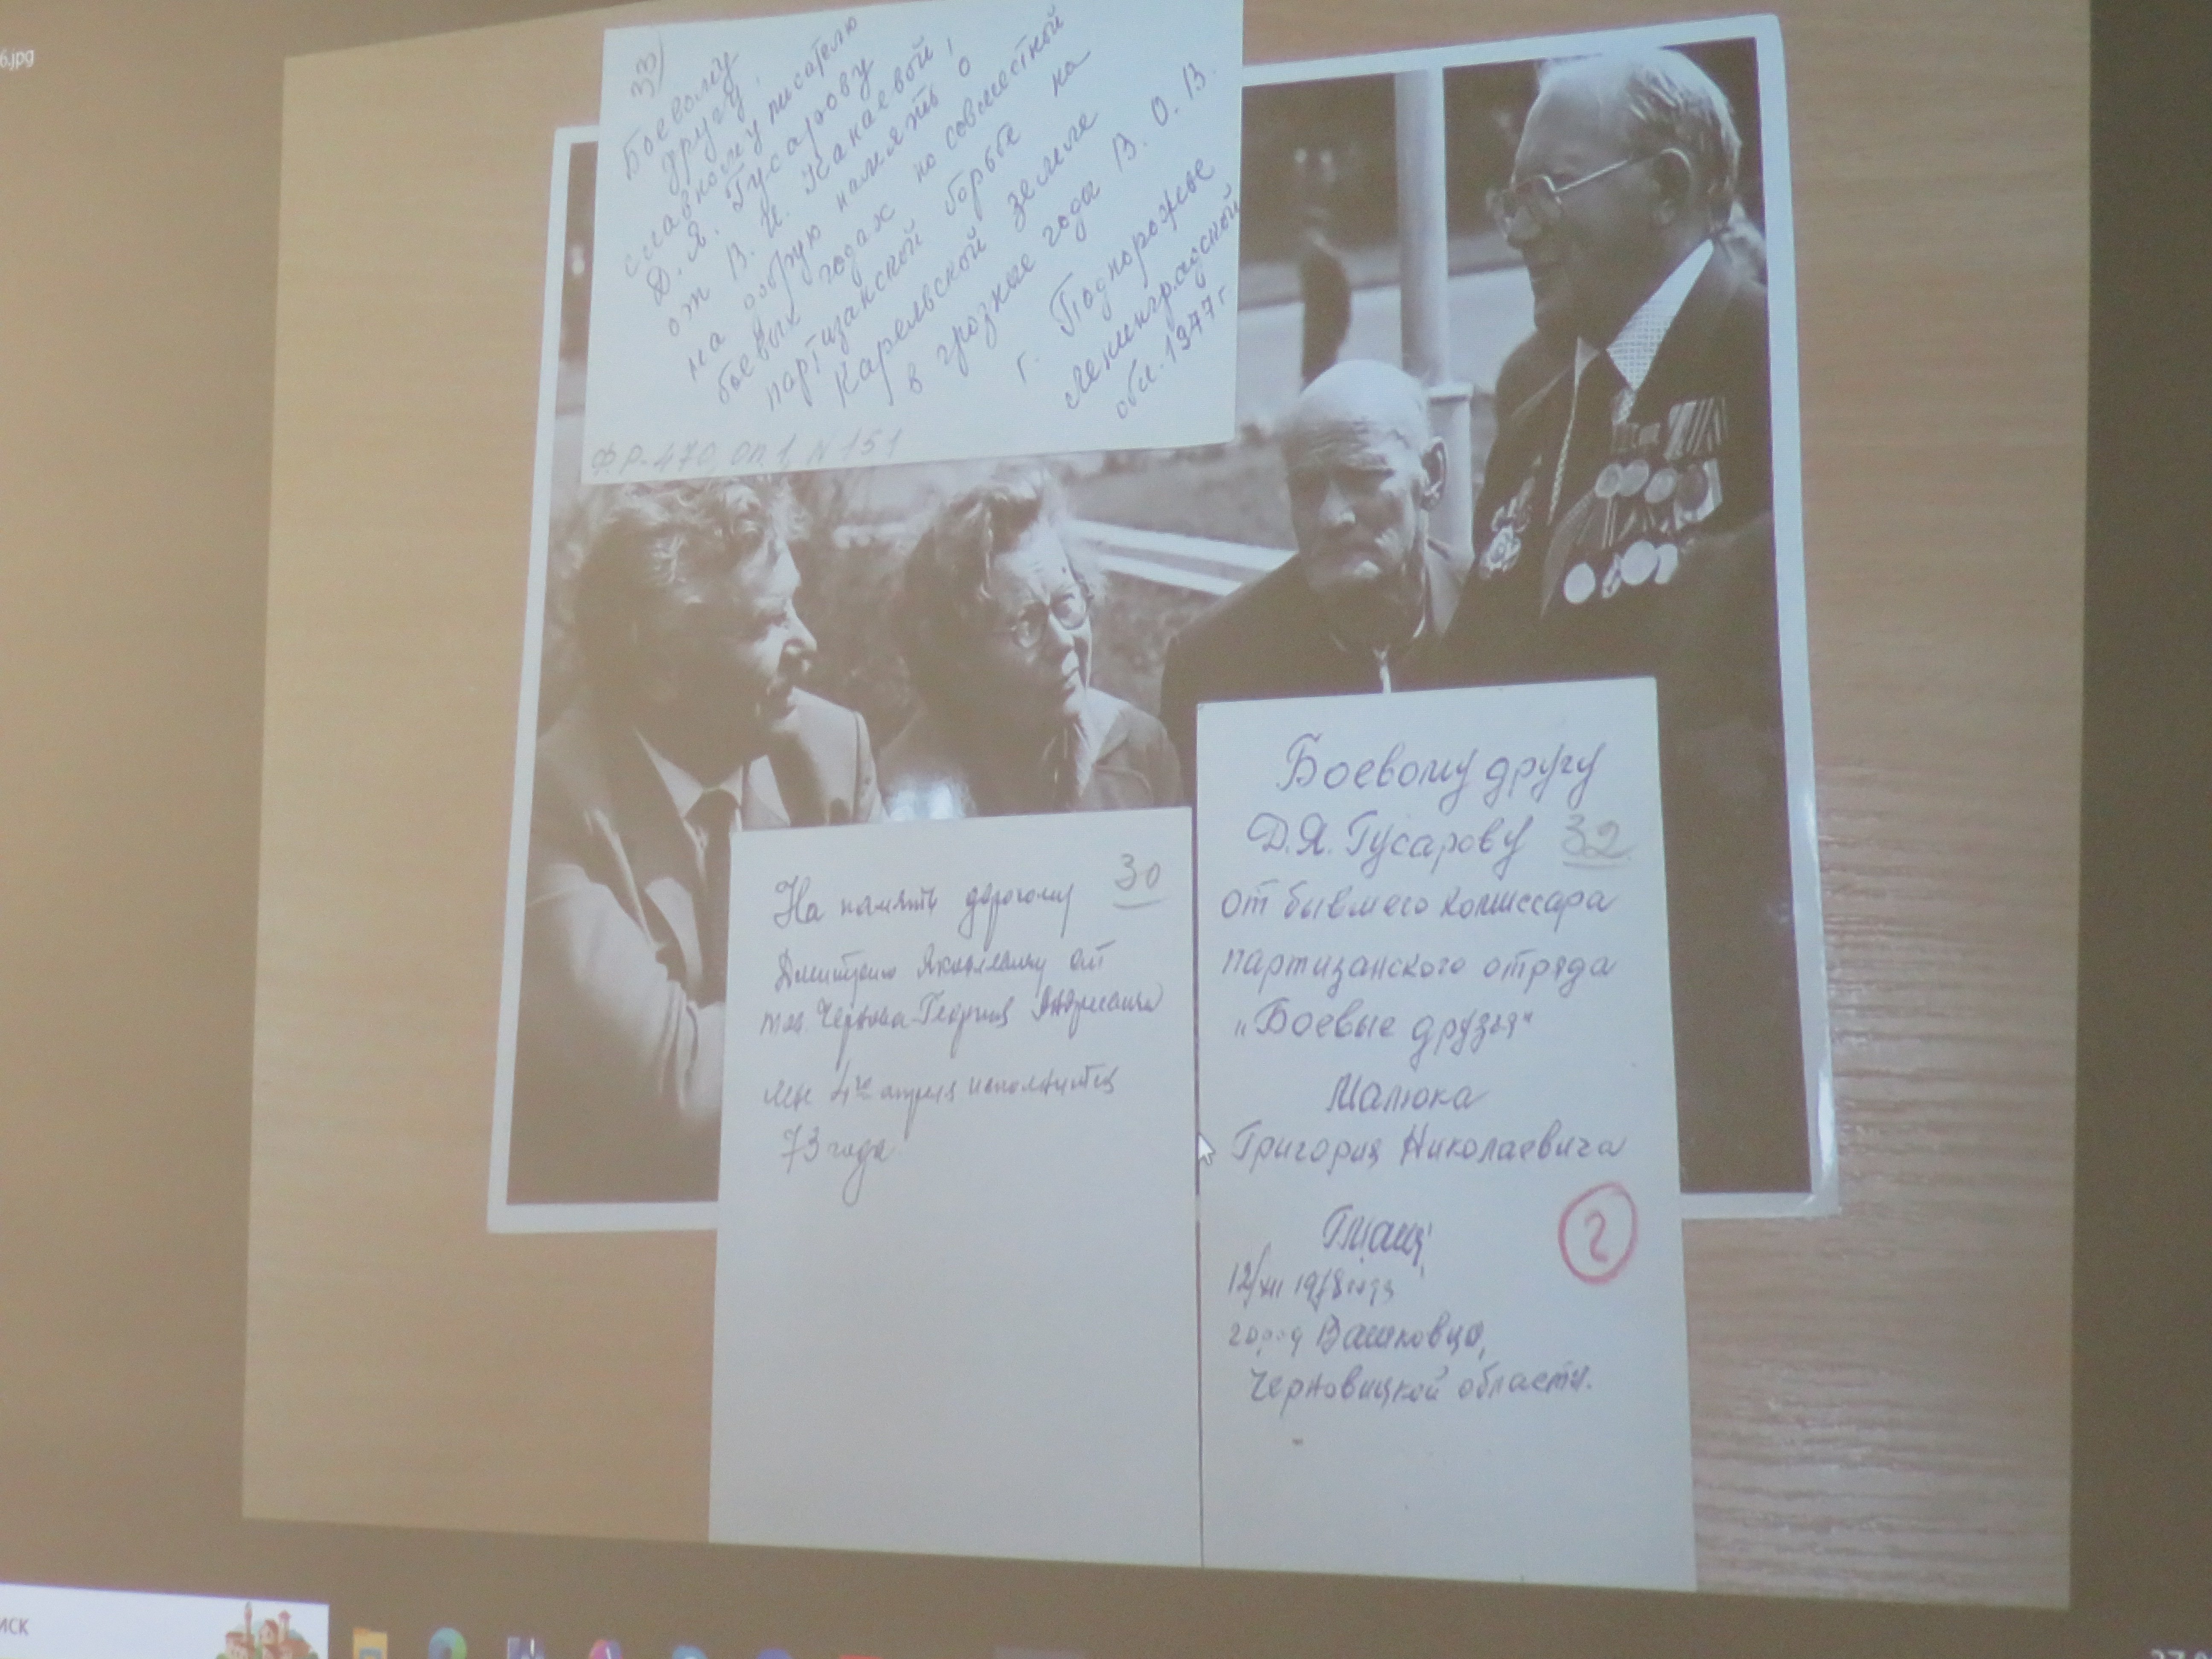 6.jpg
33)
Боевому
другу,
славному писателю
Д. Я. Гусарову
от В. И. Канаевой,
на добрую память о
боевых годах по совместной
партизанской борьбе на
Карельской земле
в грозные годы В. О. В.
г. Подпорожье
Ленинградской
обл. 1977 г
ФР-470, оп. 1, N 151
На память дорогому 30
Дмитрию Яковлевичу от
тов. Георгия
Мне 4го апреля исполнится
73 года
Боевому другу
Д. Я. Гусарову 32
от бывшего комиссара
партизанского отряда
„Боевые друзья“
Малюка
Григория Николаевича
2
12/XII 1978 года
город Вашковцы,
Черновицкой области.
ИСК